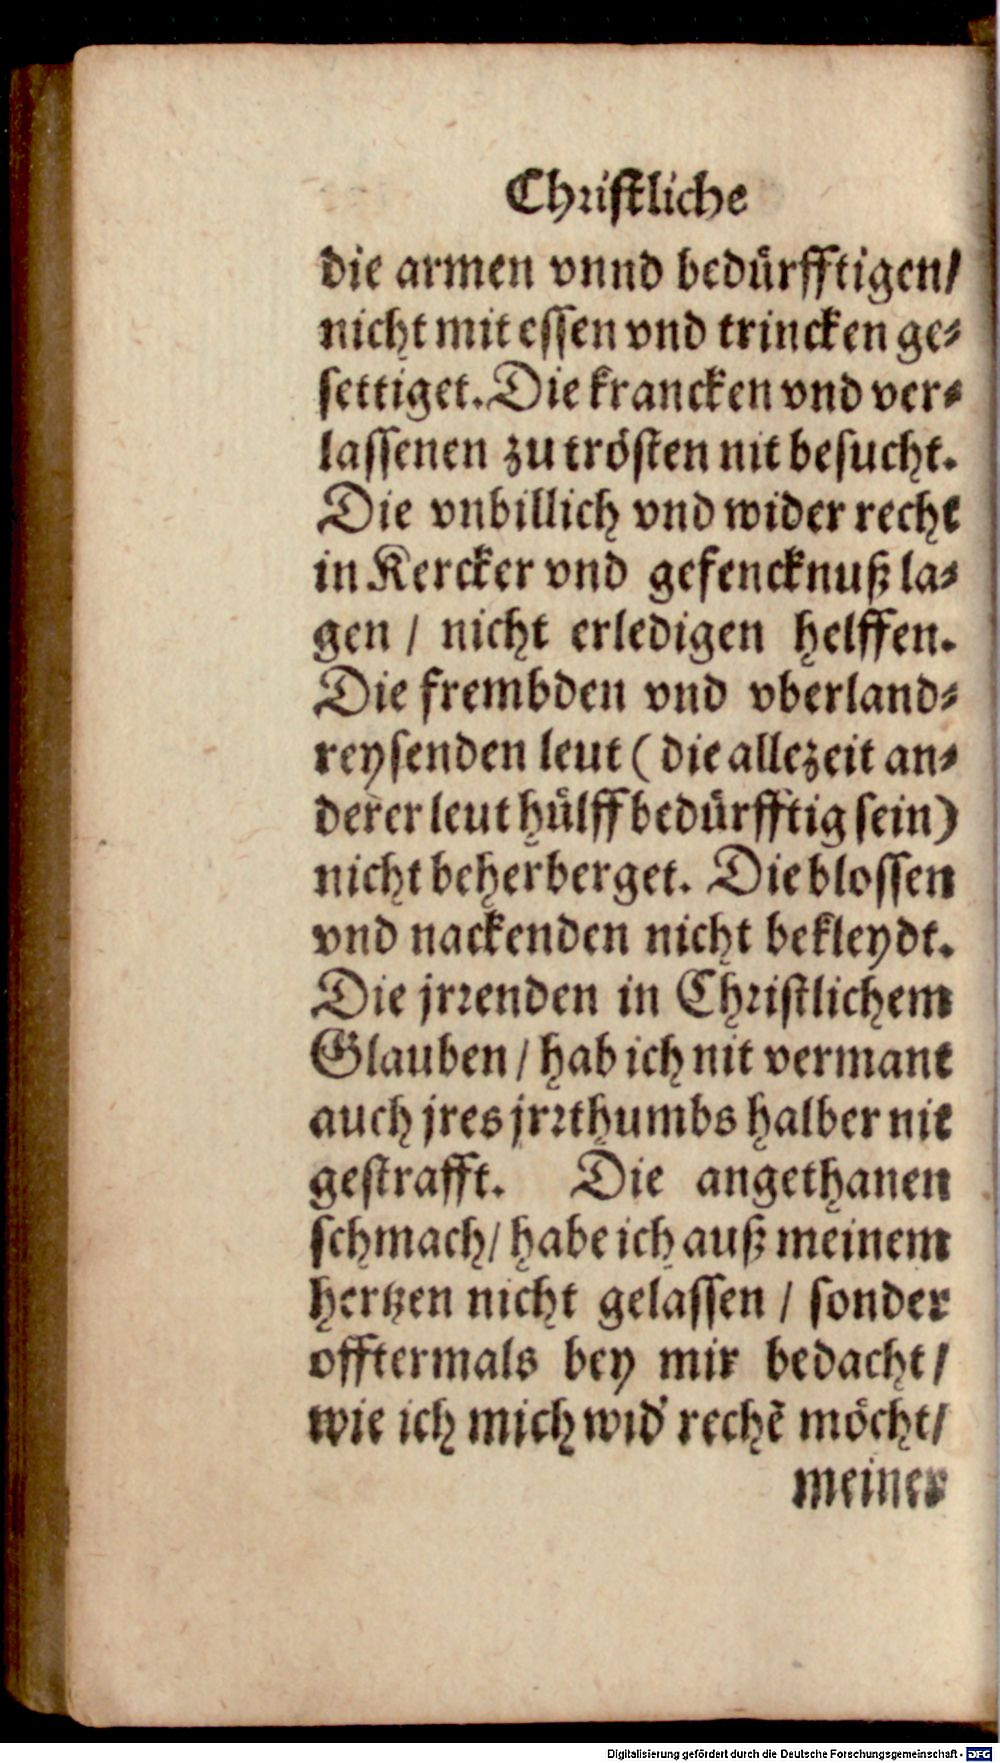 Christliche
die armen vnnd bedürfftigen/
nicht mit essen vnd trincken ge-
settiget. Die krancken vnd ver-
lassenen zu trösten nit besucht.
Die vnbillich vnd wider recht
in Kercker vnd gefencknuß la-
gen / nicht erledigen helffen.
Die frembden vnd vberland-
reysenden leut (die allezeit an-
derer leut hülff bedürfftig sein)
nicht beherberget. Die blossen
vnd nackenden nicht bekleydt.
Die jrrenden in Christlichem
Glauben / hab ich nit vermant
auch jres jrrthumbs halber nit
gestrafft. Die angethanen
schmach/ habe ich auß meinem
hertzen nicht gelassen / sonder
offtermals bey mir bedacht/
wie ich mich wid' rechē möcht/
meiner
Digitalisierung gefördert durch die Deutsche Forschungsgemeinschaft - DFG